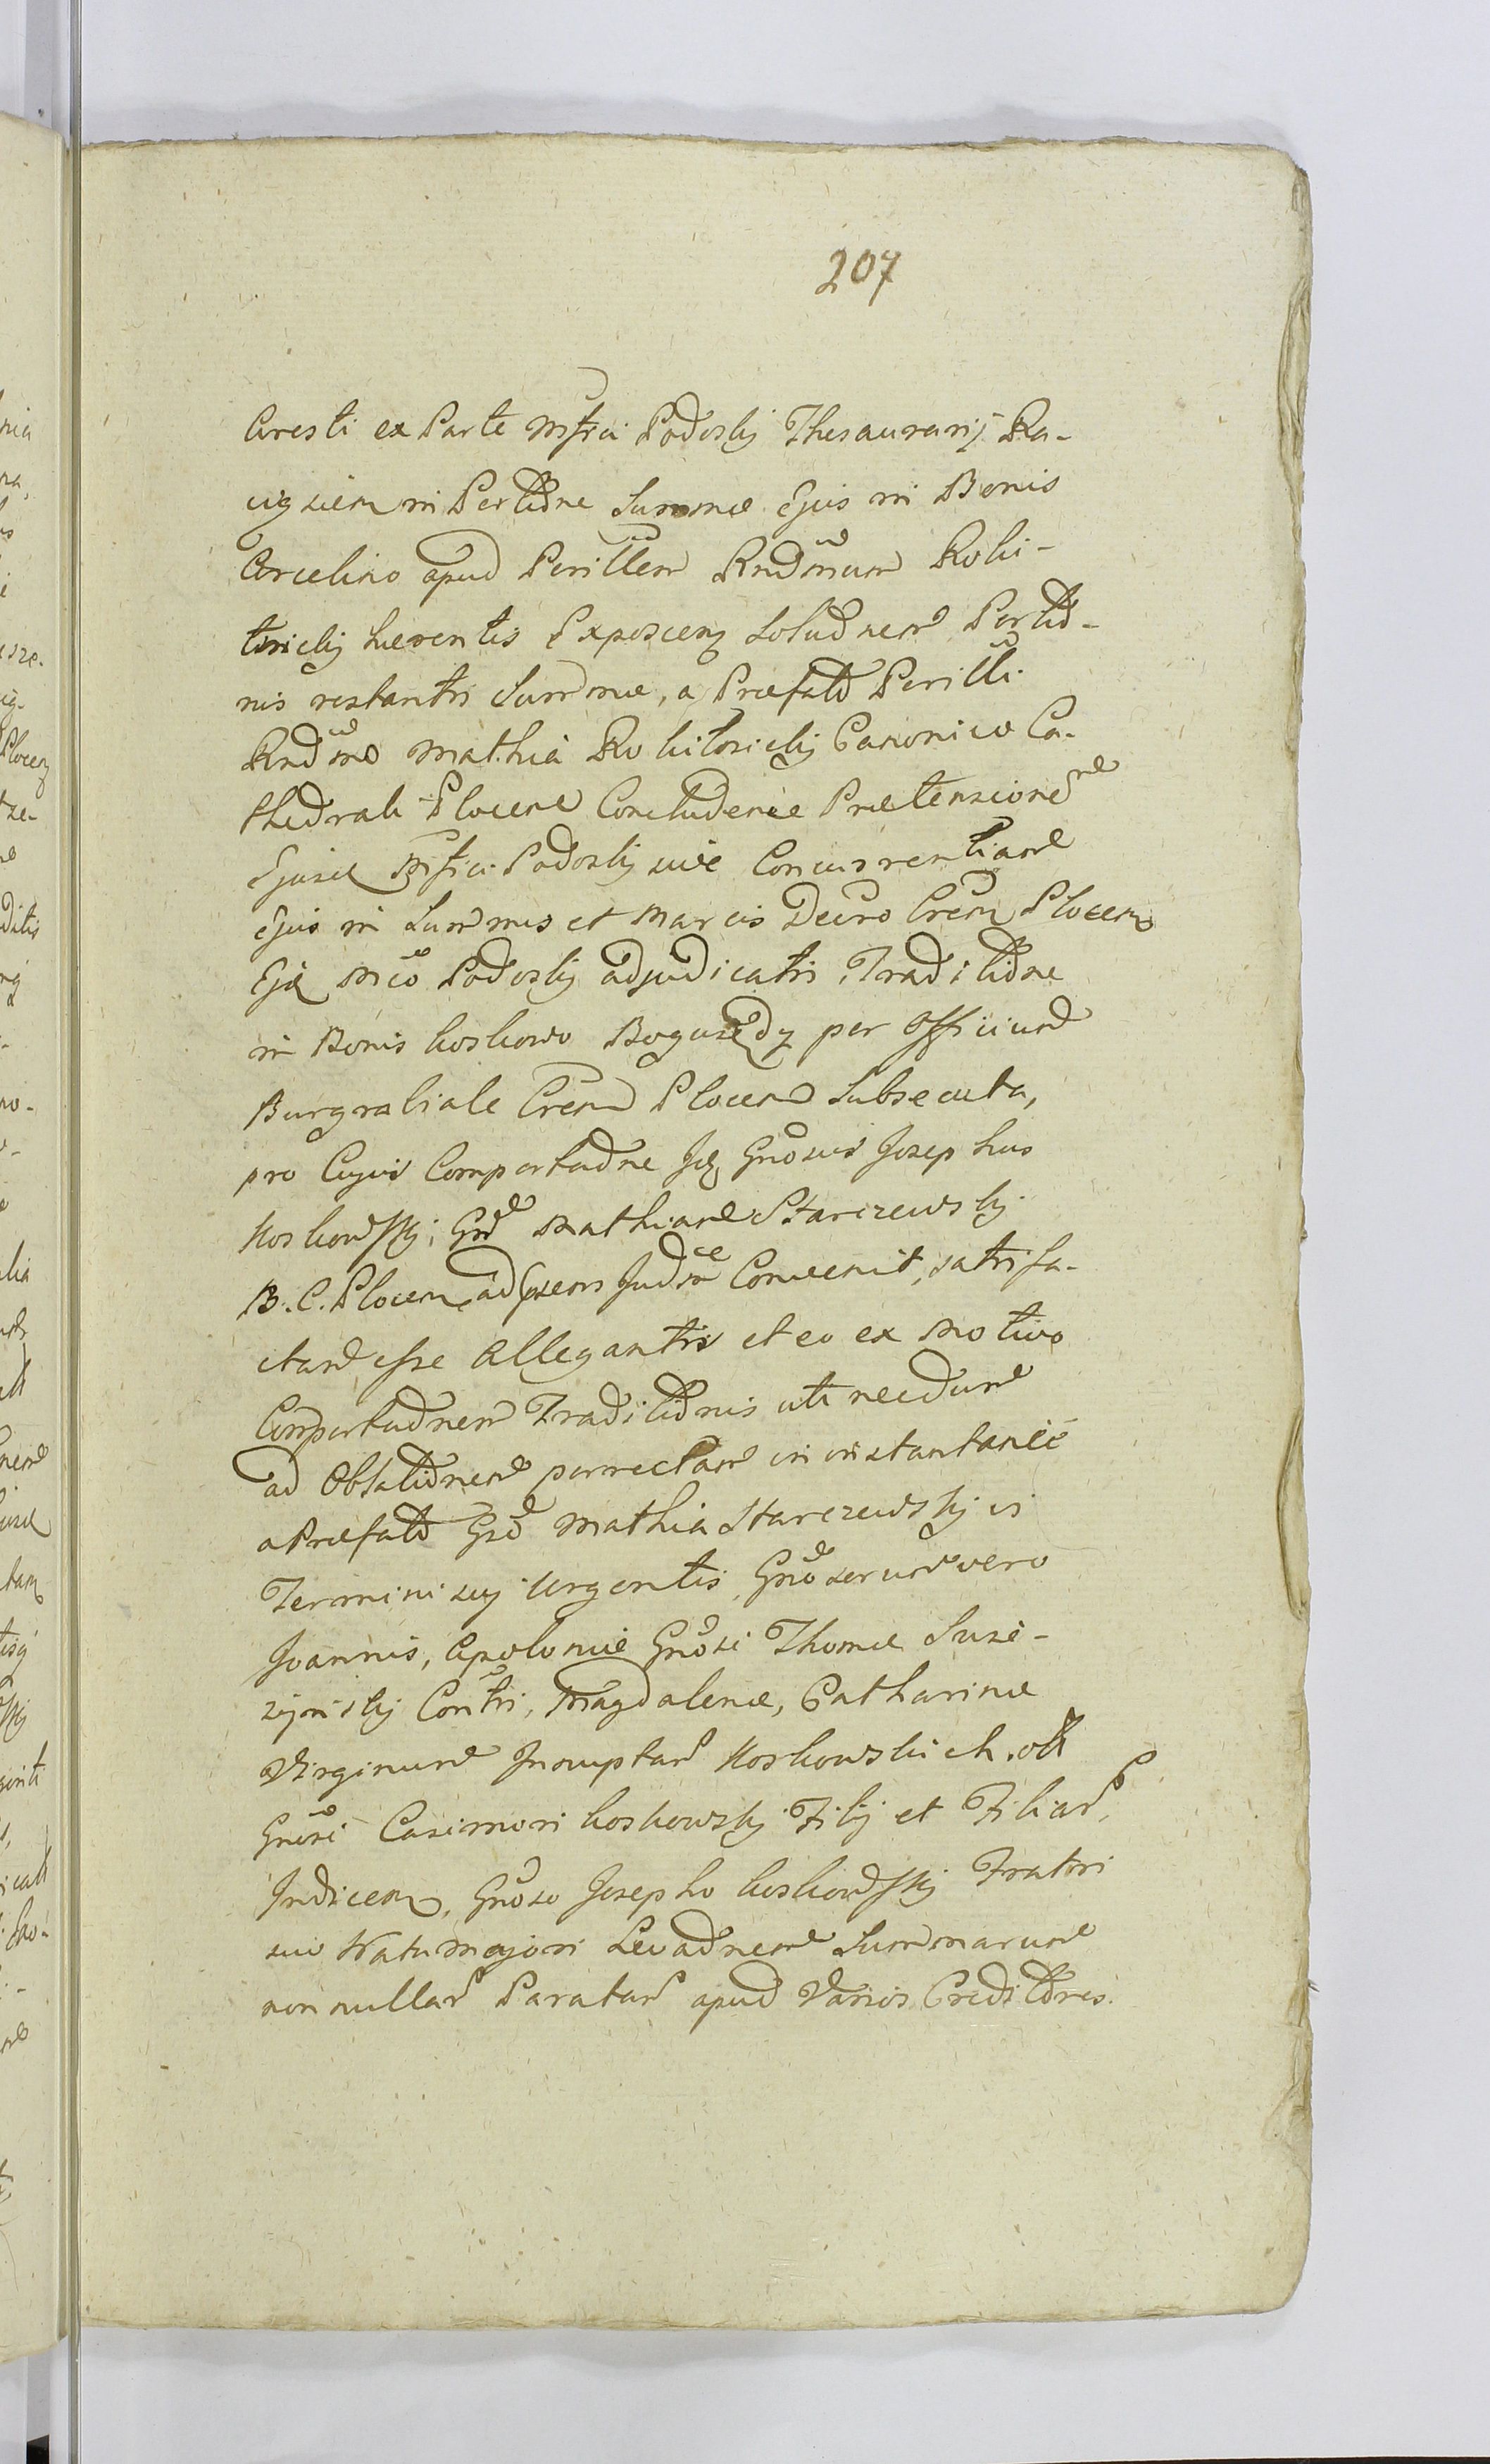 207
Aresti ex Parte Mfici Podoskj Thesaurarij Ra-
ciązien in Portione Summæ Ejus in Bonis
Arcelino apud Perillem Rndmum Roki-
tnickj hærentis Exposcen solutnem Portio-
nis restantis Summæ, a Præfato Perilli
Rndmo Mathia Rokitnickj Canonico Ca-
thedrali Plocen Concludenie Prætensionem
Ejusd Mfici Podoskj sive Concurrentiam
ejus in Summis et Marcis Decro Cren Plocen
Ejd Mco Podoskj adjudicatis, Traditione
in Bonis Koskowo Bogusędz per Officium
Burgrabiale Cren Plocen Subsecuta,
pro Cujus Comportatione Idq Gnosus Josephus
Koskowskj, Gnd Mathiam Starczewskj
B. C. Plocen, ad psens Judm Convenit, satisfa-
ctam esse Allegantis et eo ex Motivo
Comportatnem Traditionis uti necdum
ad Oblatnem porrectam in instantanee
a Præfato Gso Mathia Starczewskj vi
Termini suj Urgentis, Gnosorum vero
Joannis, Apoloniæ Gnosi Thomæ Susz-
czynskj Contis, Magdalenæ, Catharinæ
Virginum Innuptar Koskowskich, olt
Gnosi Casimiri Koskowskj Filij et Filiar,
Indicen, Gnoso Josepho Koskowskj Fratri
suo Natu Majori Levatnem Summarum
nonnullar Paratar apud Varios Creditores